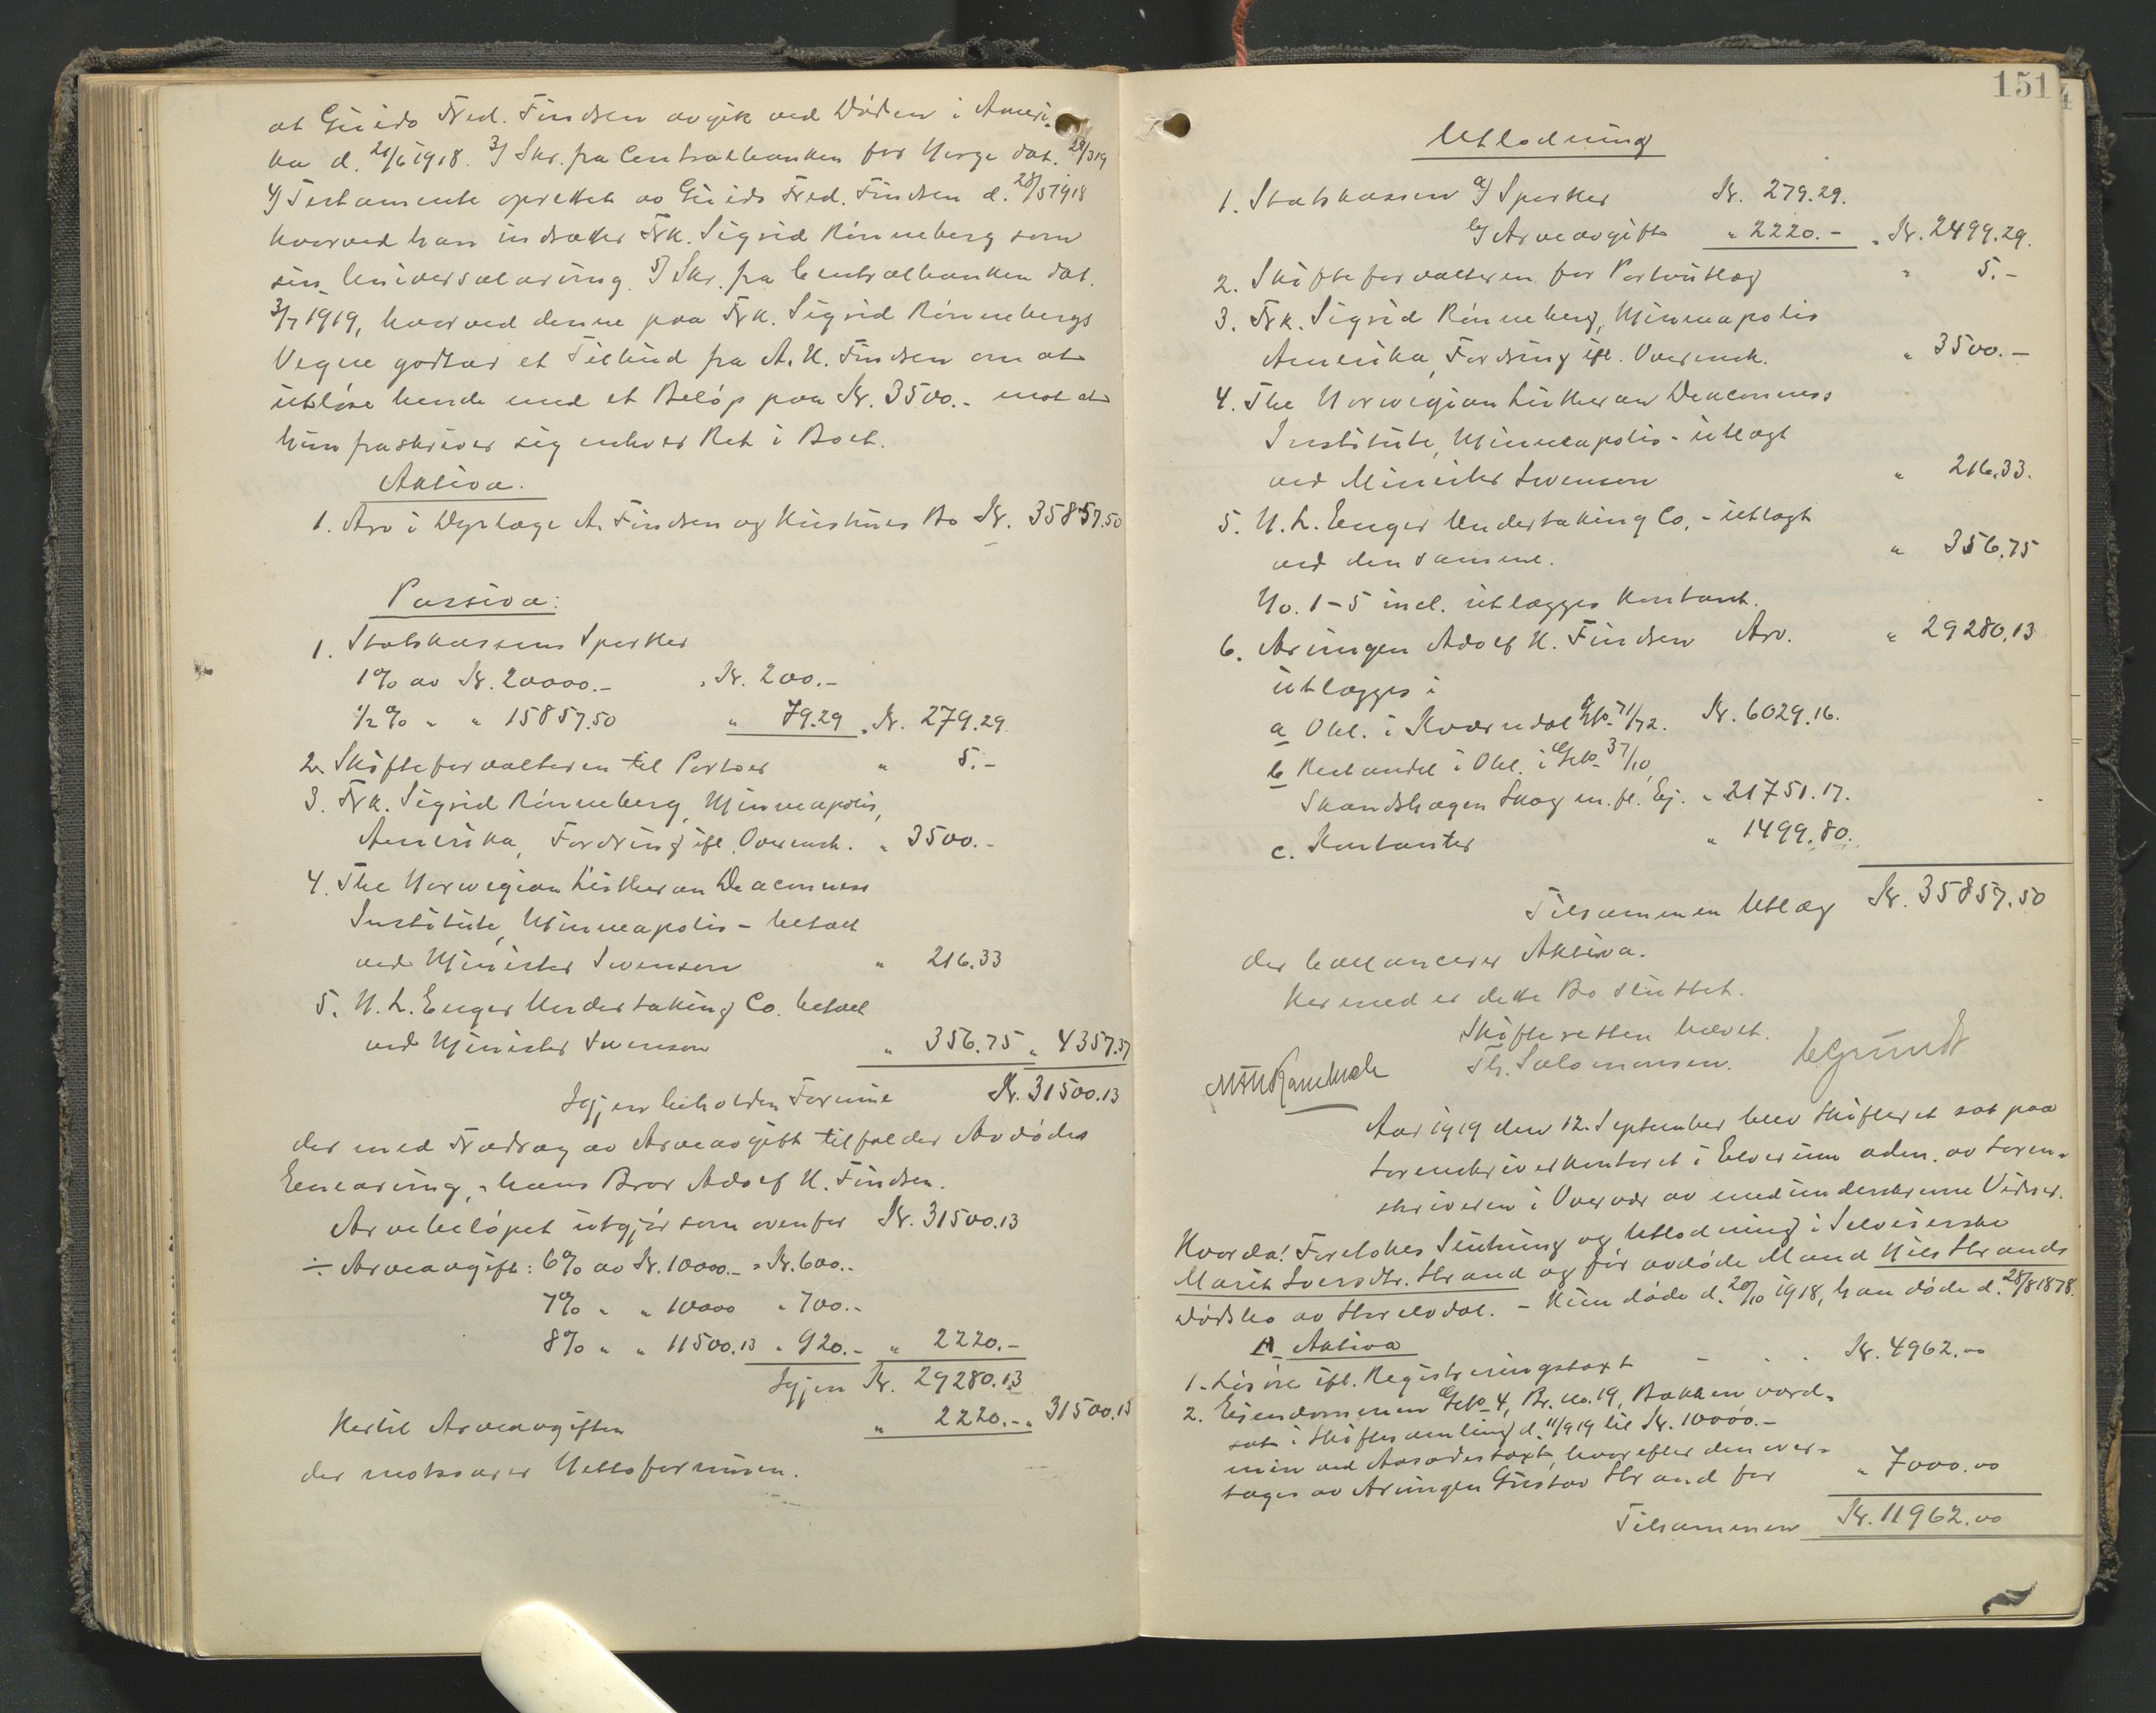 at Guido Fred. Findsen avgik ved Døden i Ameri-
ka d. 21/6 1918. 3) Skr. fra Centralbanken for Norge dat. 28/3 19
4) Testamente oprettet av Guido Fred. Findsen d. 28/5 1918
hvorved han indsætter Frk. Sigrid Rønneberg som
sin Universalarving. 5) Skr. fra Centralbanken dat.
3/7 1919, hvorved denne paa Frk. Sigrid Rønnebergs
Vegne godtar et Tilbud fra A. H. Findsen om at
utløse hende med et Beløp paa Kr. 3500.- mot at
hun fraskriver sig enhver Ret i Boet.
Aktiva.
1. Arv i Dyrlæge A. Findsen og Hustrues Bo Kr. 35857.50
Passiva:
1. Statskassens Sportler
1% av Kr. 20000.- Kr. 200.-
1/2% " " 15857.50 " 79.29 Kr. 279.29
2. Skifteforvalteren til Portoer " 5.-
3. Frk. Sigrid Rønneberg, Minneapolis,
Amerika, Fordring ifl. Overensk. " 3500.-
4. The Norwegian Lutheran Deaconness
Institute, Minneapolis - betalt
ved Minister Swenson " 216.33
5. N. L. Enger Undertaking Co. betalt
ved Minister Swenson " 356.75 " 4357.37
Igjen beholden Formue Kr. 31500.13
der med Fradrag av Arveavgift tilfalder Avdødes
Enearving, hans Bror Adolf H. Findsen.
Arvebeløpet utgjør som ovenfor Kr. 31500.13
÷ Arveavgift: 6% av Kr. 10000.- = Kr. 600.-
7% " " 10000 " 700.-
8% " " 11500.13 " 920.- " 2220.-
Igjen Kr. 29280.13
Hertil Arveavgiften " 2220.- " 31500.13
der motsvarer Nettoformuen.
151
Utlodning
1. Statskassen a) Sportler Kr. 279.29.
b) Arveavgift " 2220.- Kr. 2499.29.
2. Skifteforvalteren for Portoutlæg " 5.-
3. Frk. Sigrid Rønneberg, Minneapolis
Amerika, Fordring ifl. Overensk. " 3500.-
4. The Norwegian Lutheran Deaconness
Institute, Minneapolis - utlagt
ved Minister Swenson " 216.33.
5. N. L. Enger Undertaking Co. - utlagt
ved den samme. " 356.75
No. 1-5 incl. utlægges kontant.
6. Arvingen Adolf H. Findsen Arv. " 29280.13
utlægges i
a Obl. i Kværndal 71/72. Kr. 6029.16.
b Restandel i Obl. i 37/10
Skandshagen Skog m. fl. Ej. " 21751.17.
c. Kontanter " 1499.80.
Tilsammen Utlæg Kr. 35857.50
der balancerer Aktiva.
Hermed er dette Bo sluttet.
Skifteretten hævet.
Th. Salomonsen.
Aar 1919 den 12. September blev Skifteret sat paa
Sorenskriverkontoret i Elverum adm. av Soren-
skriveren i Overvær av medunderskrevne Vidner.
Hvorda! Foretokes Slutning og Utlodning i Selveierske
Marit Iversdtr. Strand og før avdøde Mand Nils Strands
Dødsbo av Storelvdal. - Hun døde d. 20/10 1918, han døde d. 28/8 1878.
A Aktiva
1. Løsøre ifl. Registreringstaxt Kr. 4962.00
2. Eiendommen 4, Br. no. 19, Bakken værd-
sat i Skiftesamling d. 11/9 19 til Kr. 10000.-
men ved Aasædestaxt, hvorefter den over-
tages av Arvingen Gustav Strand for " 7000.00
Tilsammen Kr. 11962.00